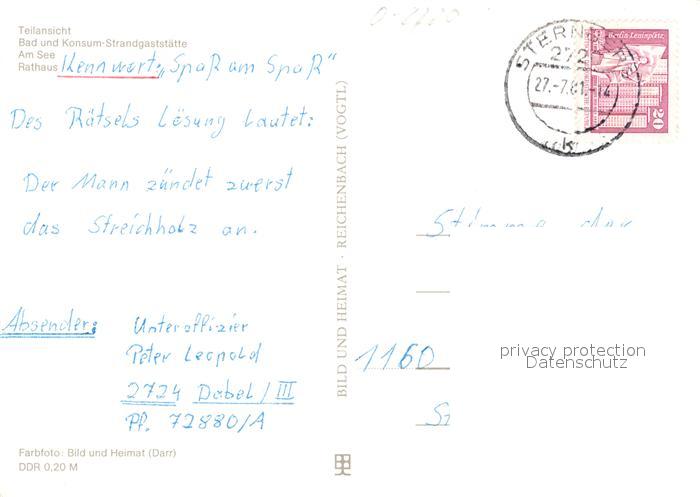 Teilansicht
Bad und Konsum-Strandgaststätte
Am See
Rathaus
Kennwort: „Spaß am Spaß"
Des Rätsels Lösung lautet:
Der Mann zündet zuerst
das Streichholz an.
Absender: Unteroffizier
Peter Leopold
2724 Dabel / III
Pf. 72880/A
Farbfoto: Bild und Heimat (Darr)
DDR 0,20 M
BILD UND HEIMAT · REICHENBACH (VOGTL)
STERNBERG
272
27.-7.81.-14
Berlin-Leninplatz
20
Stimme der
1160
privacy protection
Datenschutz